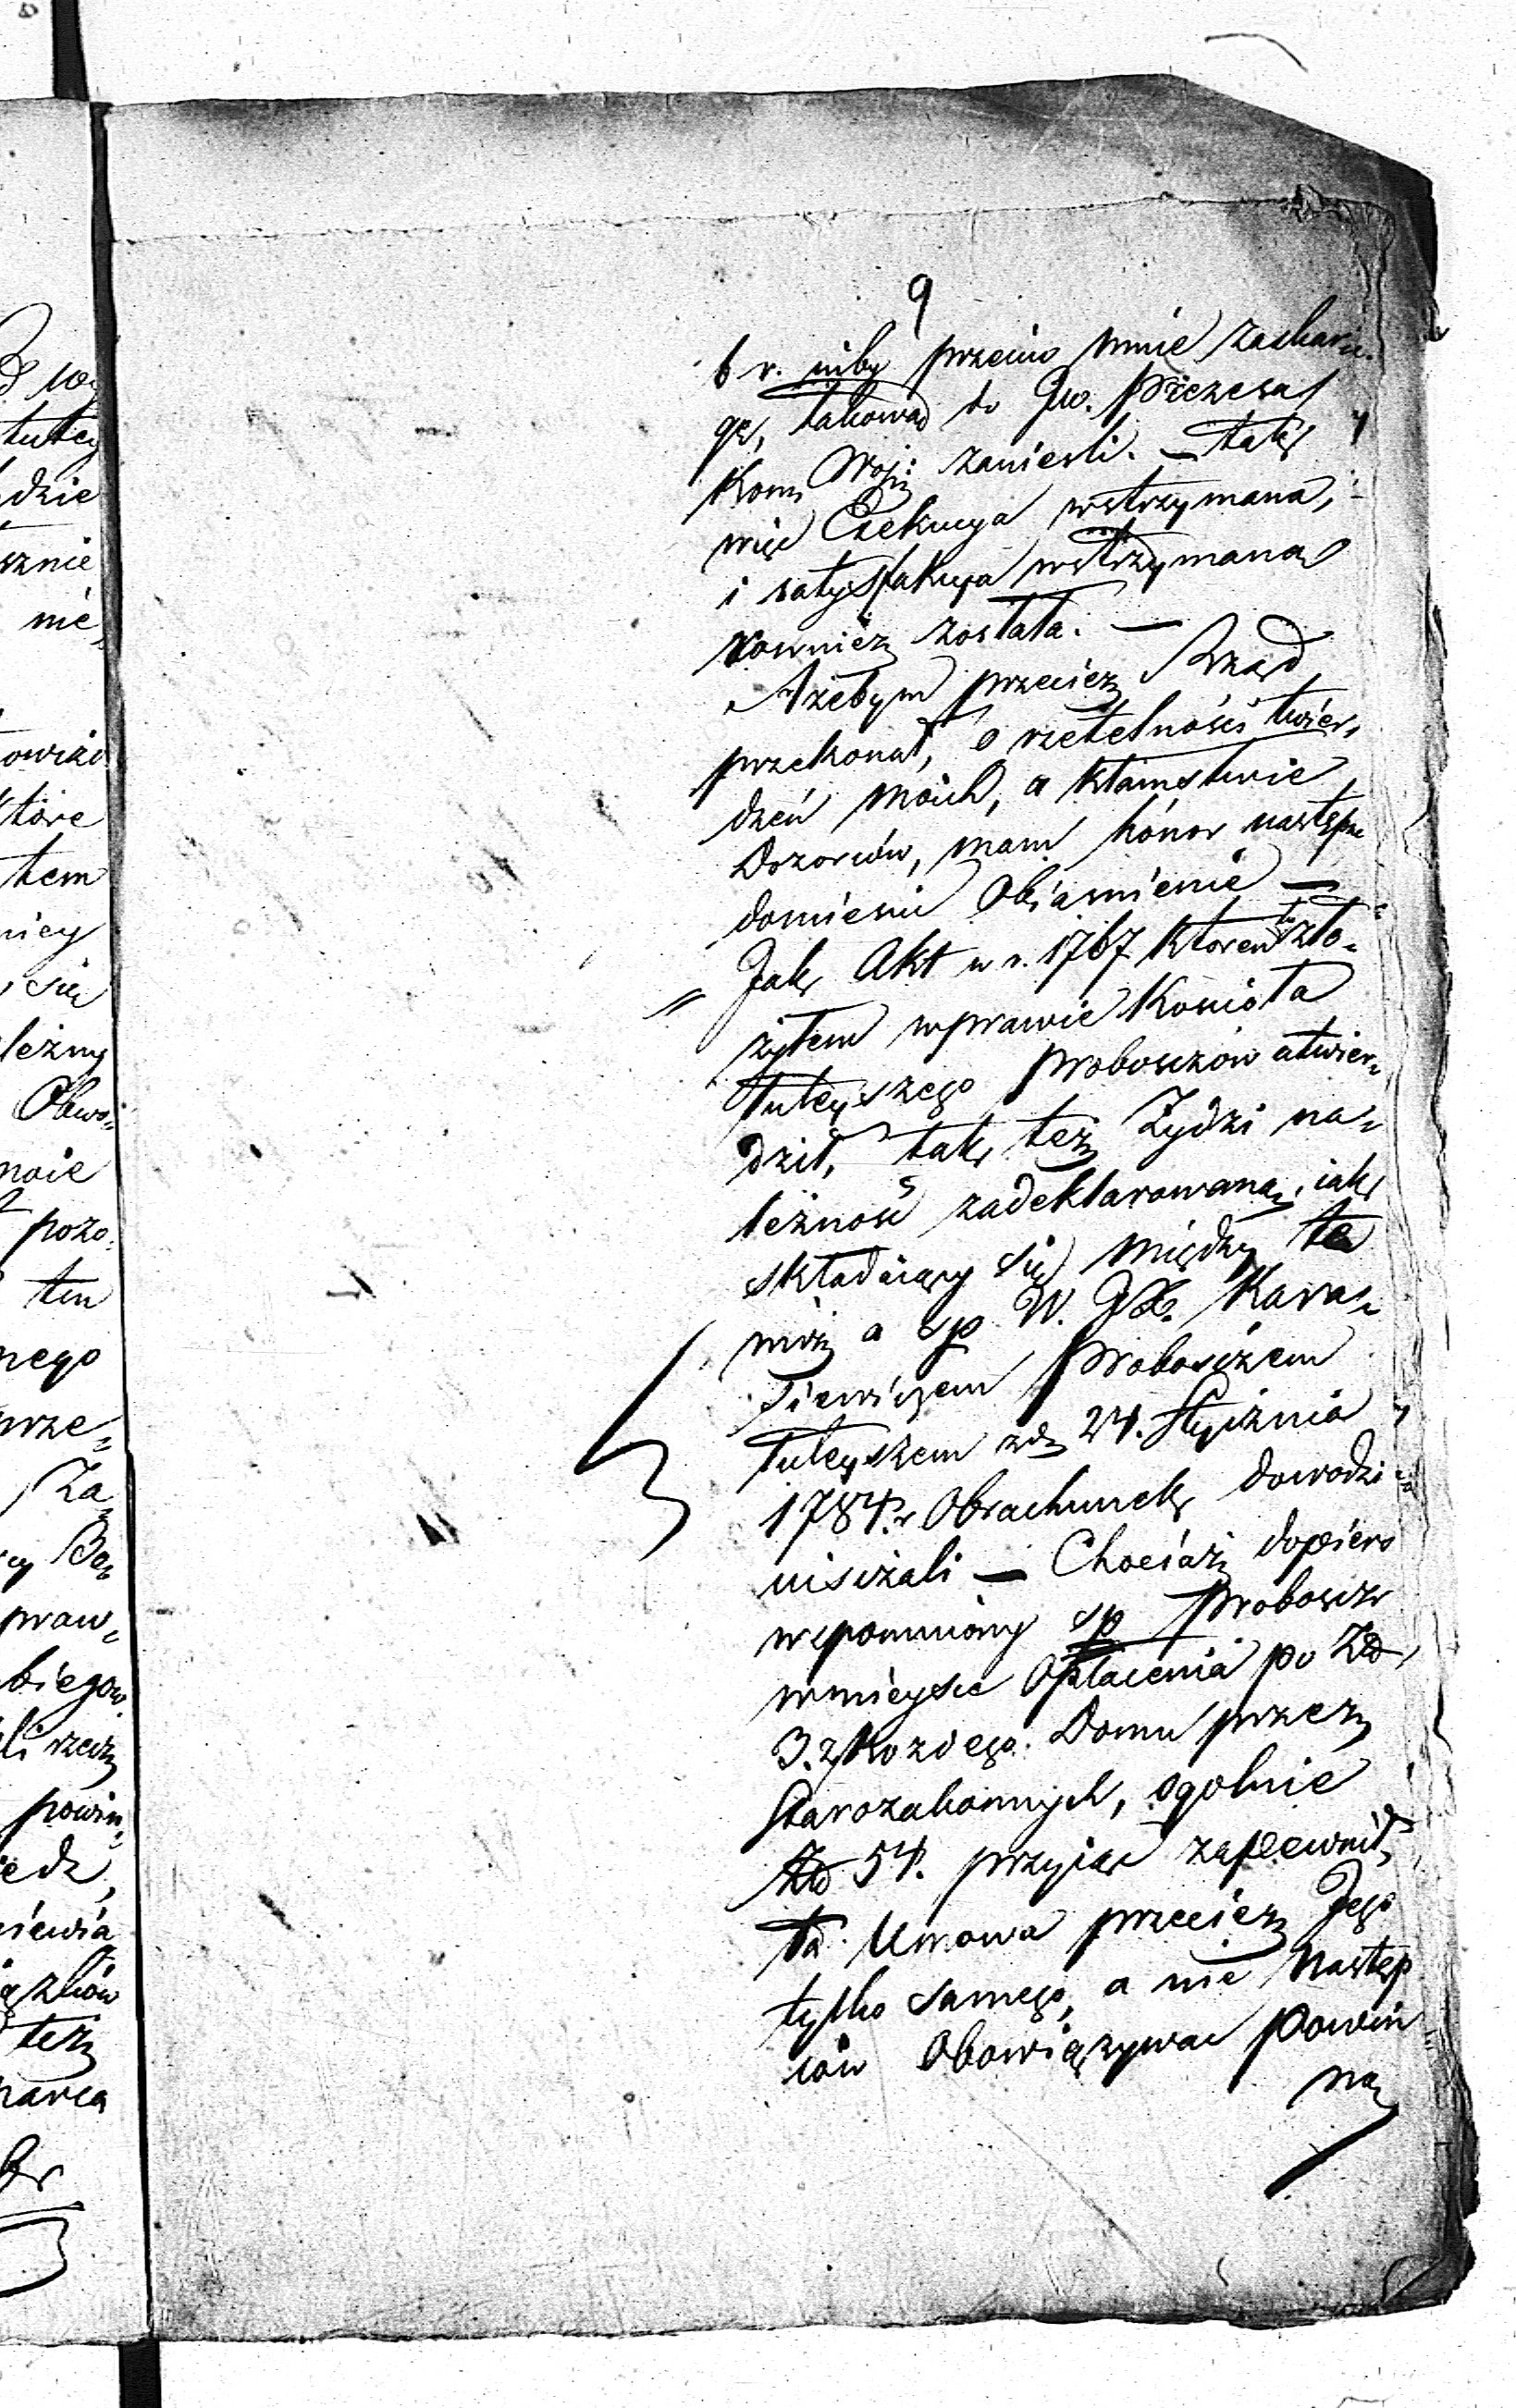 9
b r. niby przeciw mnie zaskar„
gę, takową do JW. Prezesa
Kom Wojj: zanieśli. — tak
więc Exekucya wstrzymana,
i satysfakcya wstrzymana
rownież została. —
Ażebym przecież Rząd
przekonał, o rzetelności twier„
dzeń moich, a kłamstwie
Dozorców, mam honor następu
doniesić Obiaśnienie —
„ Jak Akt w r. 1767 ktoren tu zło„
żyłem wprawie Kościoła
Tuteyszego proboszczow utwier„
dził, tak też Żydzi na„
leżnosć zadeklarowaną, iak
składaiący się między te
miż a sp W. JX. Karas„
siewiczem Proboszczem
Tuteyszem zd 24. Stycznia
1784 r Obrachunek dowodzi
uiszczali — Chociaż dopiero
wspomniony sp Proboszcz
wmieysce Opłacenia po Zł
3. z Kozdego Domu przez
Starozakonnych, ogolnie
Zł 54. przyiąć zapewnił,
ta Umowa przecież Jego
tylko samego, a nie Następ
ców Obowiązywac powin„
na
tutey
dzie
sznie
nie„
które
tem
niey
się
leżny
pozo„
ten
nego
prze„
Za„
praw„
li rzecz
powin„
też
marca